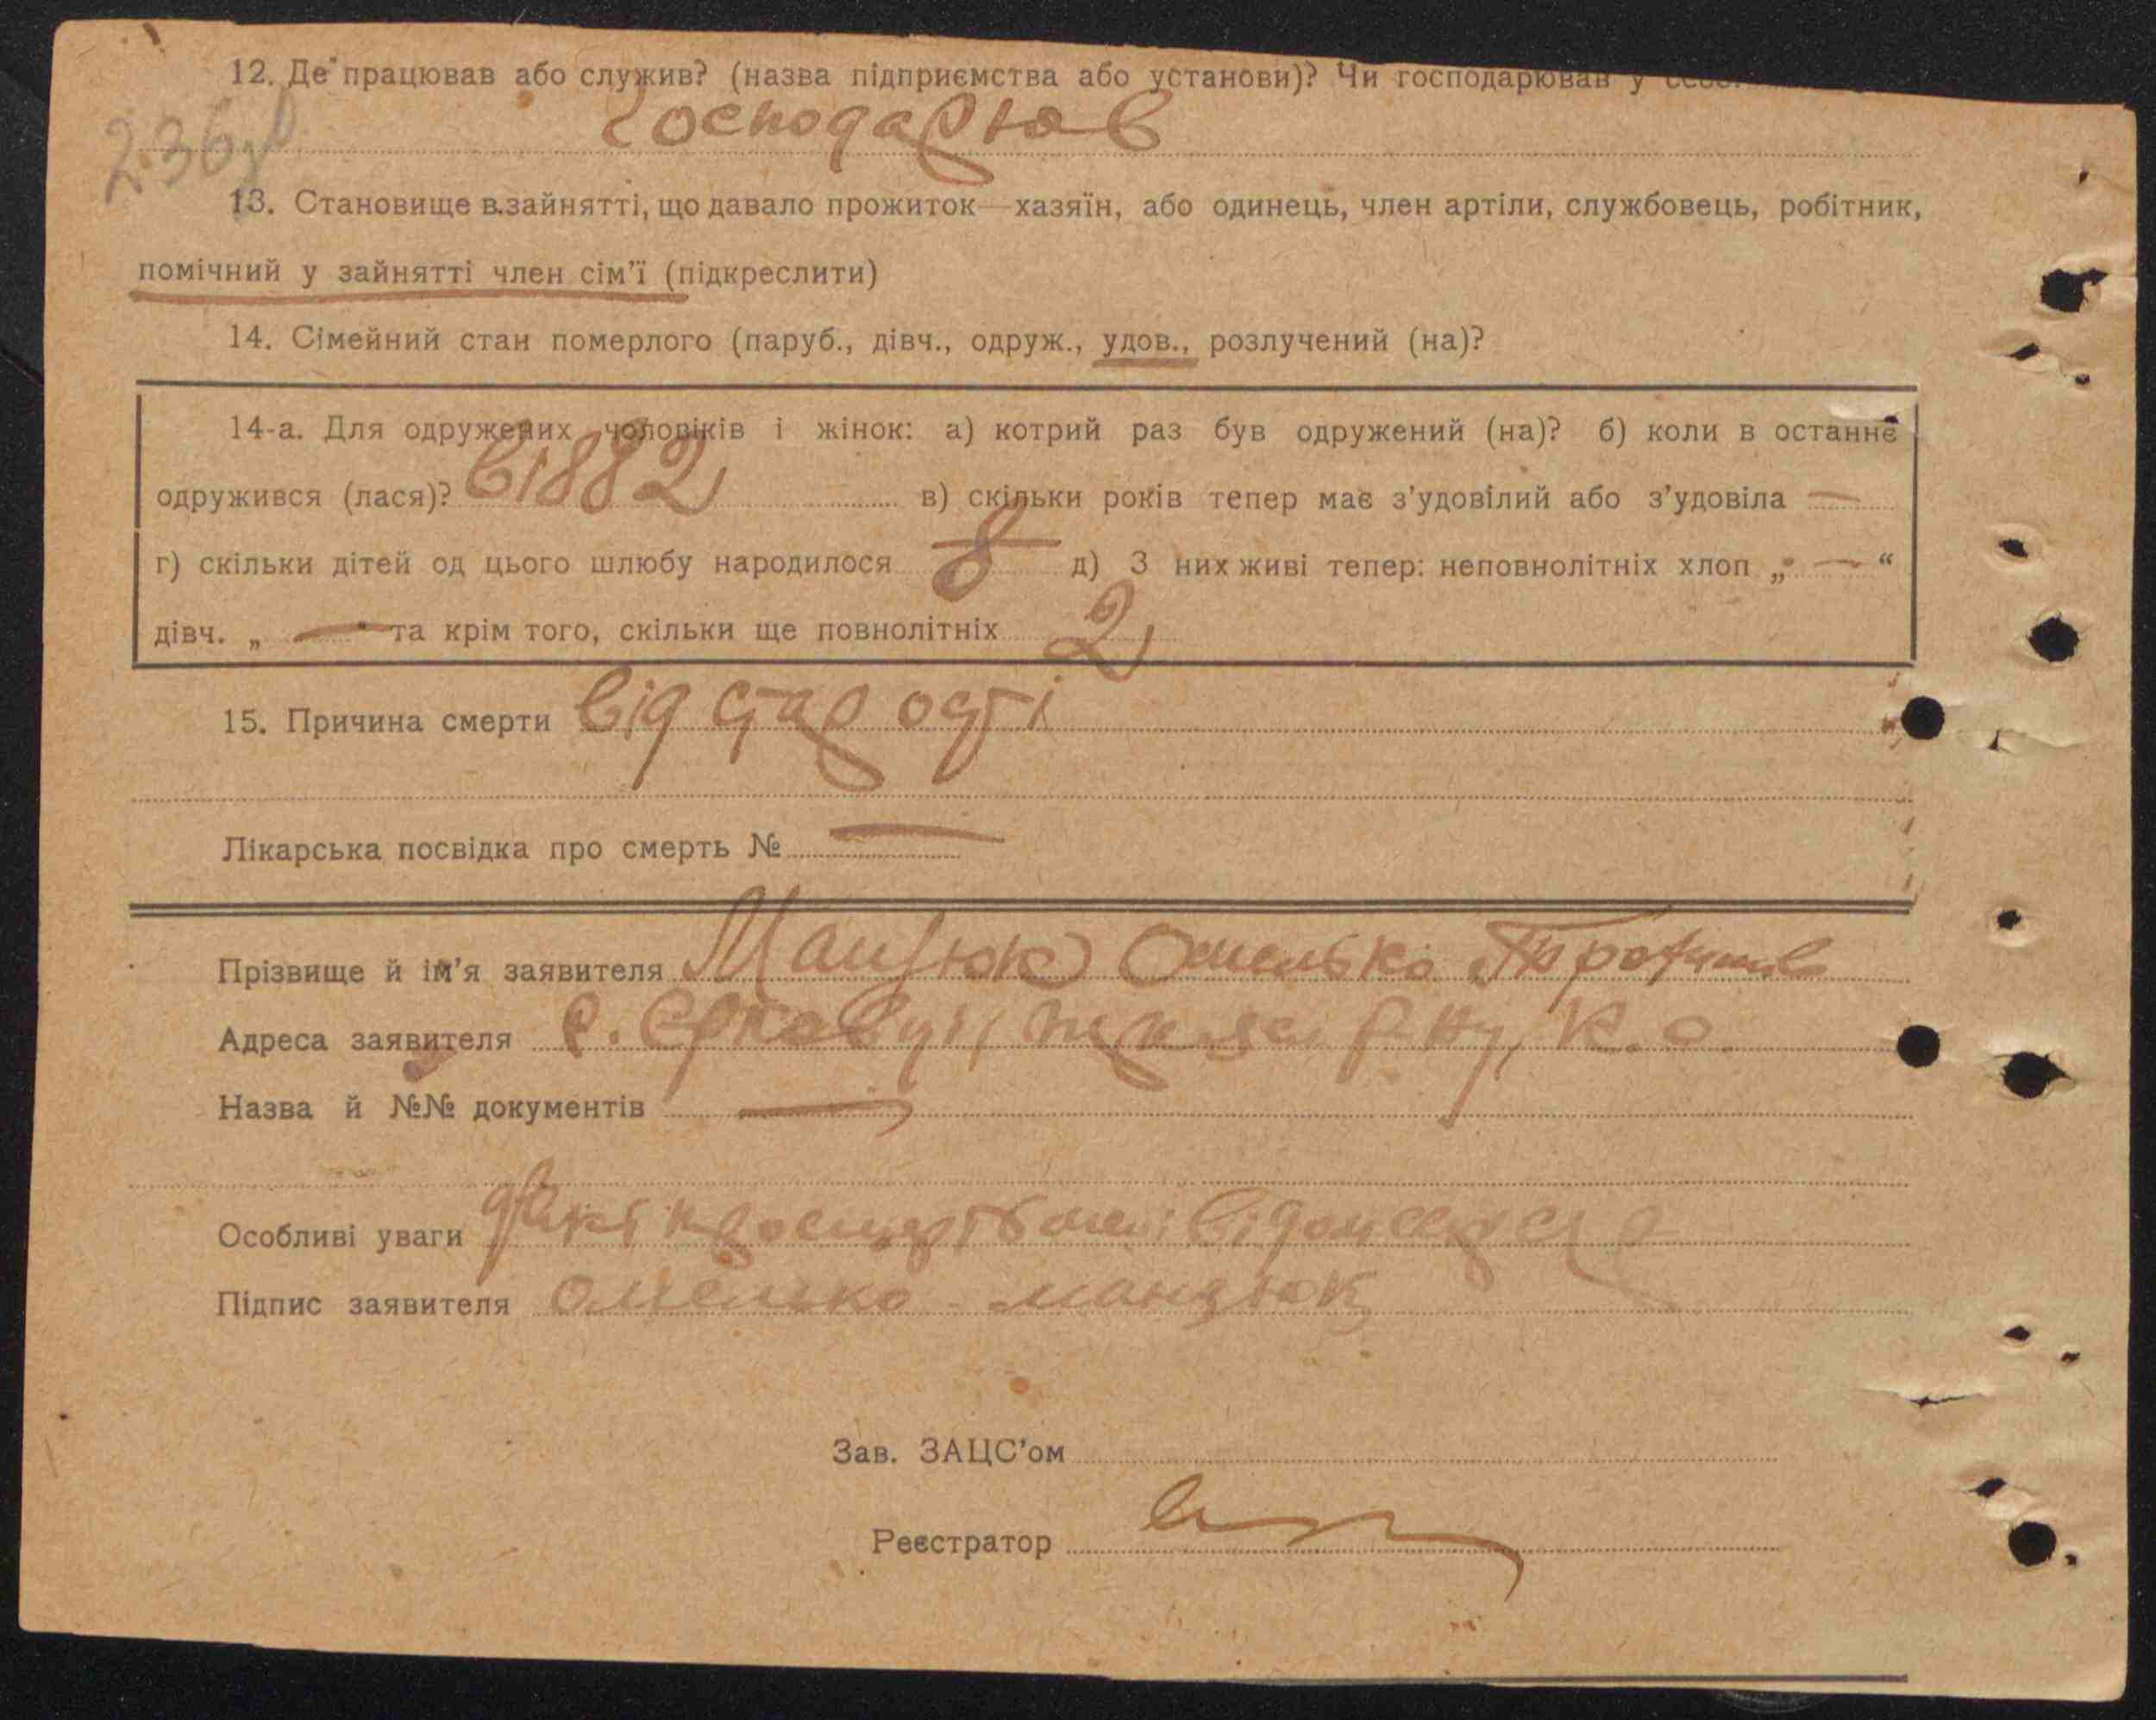 12. Де працював або служив? (назва підприємства або установи)? Чи господарював у себе?
Господарюв
236
13. Становище в зайнятті, що давало прожиток—хазяїн, або одинець, член артіли, службовець, робітник,
помічний у зайнятті член сім'ї (підкреслити)
14. Сімейний стан померлого (паруб., дівч., одруж., удов., розлучений (на)?
14-а. Для одружених чоловіків і жінок: а) котрий раз був одружений (на)? б) коли в останнє
одружився (лася)? в 1882 в) скільки років тепер має з'удовілий або з'удовіла —
г) скільки дітей од цього шлюбу народилося 8 д) З них живі тепер: неповнолітніх хлоп „ — “
дівч. „ — “ та крім того, скільки ще повнолітніх 2
15. Причина смерти від старості
Лікарська посвідка про смерть № —
Прізвище й ім'я заявителя Мандюк Омелько
Адреса заявителя с. К. О.
Назва й №№ документів —
Особливі уваги факт про смерть мені відом
Підпис заявителя Омелько Мандюк
Зав. ЗАЦС'ом
Реєстратор